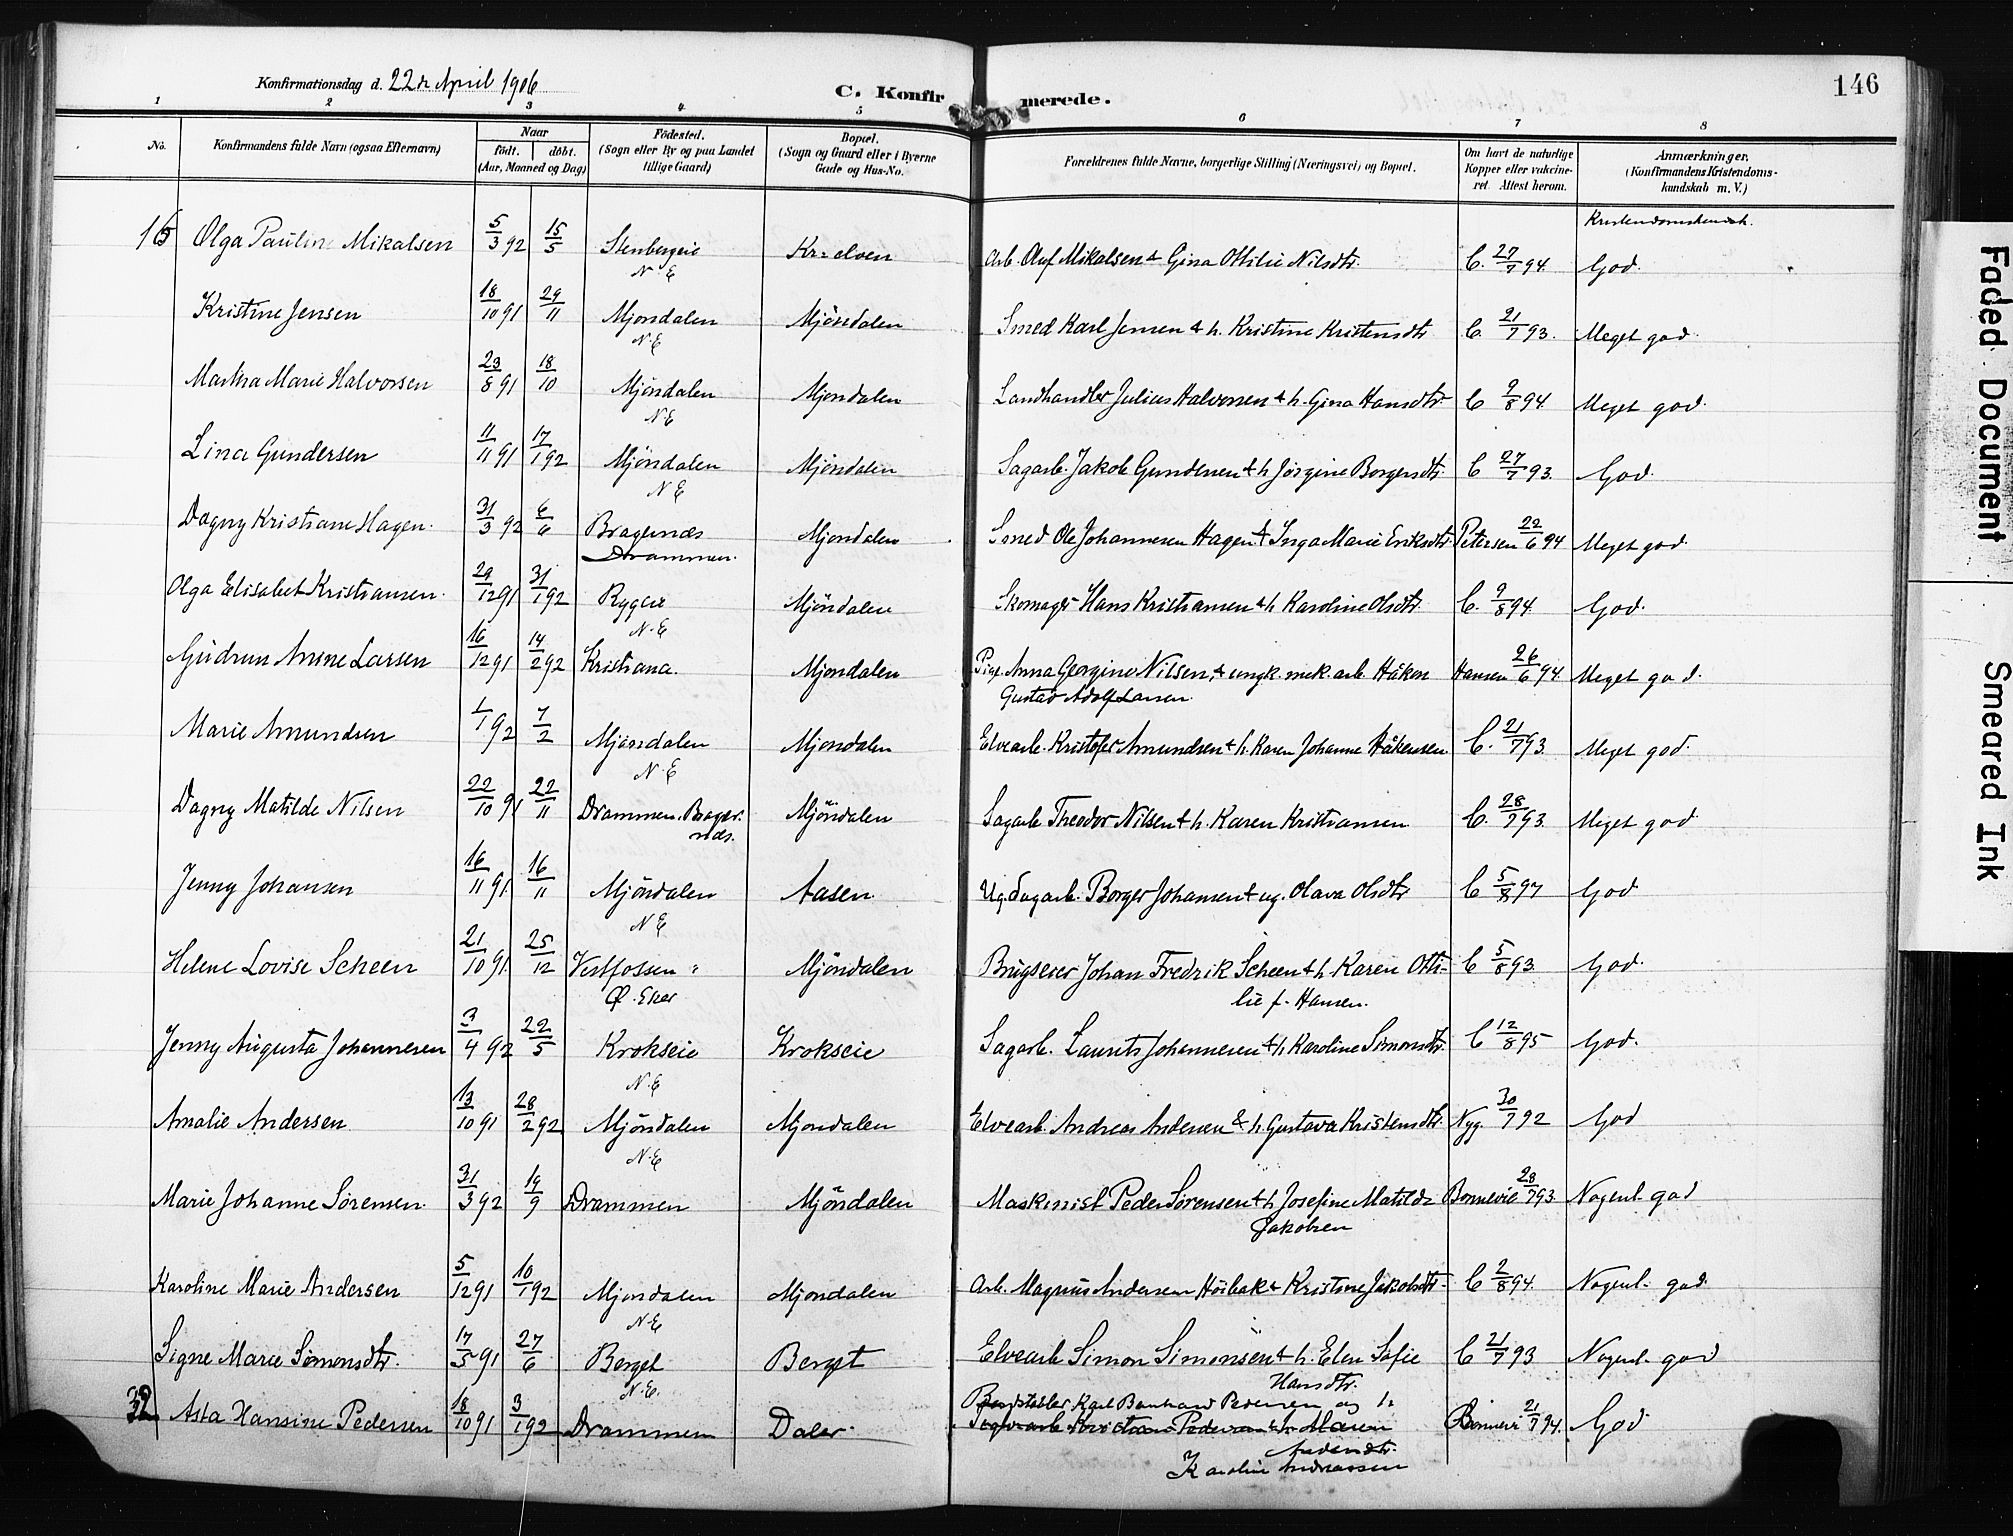 Konfirmationsdag d. 22de April 1906
C. Konfirmerede.
146
1 2 3 4 5 6 7 8
No. Konfirmandens fulde Navn (ogsaa Efternavn) Naar født. døbt. (Aar, Maaned og Dag) Fødested. (Sogn eller By og paa Landet tillige Gaard) Bopæl. (Sogn og Gaard eller i Byerne Gade og Hus-No. Forældrenes fulde Navne, borgerlige Stilling (Næringsvei) og Bopæl. Om havt de naturlige Kopper eller vakcineret. Attest herom. Anmærkninger. (Konfirmandens Kristendomskundskab m. V.)
Kristendomskundsk.
16 Olga Pauline Mikalsen 5/3 92 15/5 Stenbergeie N E Kr=elven Arb. Oluf Mikalsen & Gina Ottilie Nilsdtr. C. 27/7 94. God.
Kristine Jensen 18/10 91 29/11 Mjøndalen N E Mjøndalen Smed Karl Jensen & h. Kristine Kristensdtr C. 21/7 93. Meget god.
Martha Marie Halvorsen 23/8 91 18/10 Mjøndalen N E Mjøndalen Landhandler Julius Halvorsen & h. Gina Hansdtr C 9/8 94. Meget god.
Lina Gundersen 11/11 91 17/1 92 Mjøndalen N E Mjøndalen Sagarb. Jakob Gundersen & h Jørgine Borgersdtr. C 27/7 93. God.
Dagny Kristiane Hagen. 31/3 92 6/6 Bragernæs Drammen. Mjøndalen Smed Ole Johannesen Hagen & Inga Marie Eriksdtr. Petersen 22/6 94 Meget god.
Olga Elisabet Kristiansen. 29/12 91 31/1 92 Ryggeie N. E Mjøndalen Skomager Hans Kristiansen & h Karoline Olsdtr. C. 9/8 94. God.
Gudrun Anine Larsen 16/12 91 14/2 92 Kristiania. Mjøndalen Pige Anna Georgine Nilsen, & ungk. mek. arb. Håkon Gustav Adolf Larsen Hansen 26/6 94. Meget god.
Marie Amundsen 1/1 92 7/2 Mjøndalen N. E Mjøndalen Elvearb. Kristofer Amundsen & h. Karen Johanne Håkensen C. 21/7 93. Meget god.
Dagny Matilde Nilsen 22/10 91 22/11 Drammen. Bragernæs. Mjøndalen Sagarb Theodor Nilsen & h. Karen Kristiansen C. 28/7 93. Meget god
Jenny Johansen 16/11 91. 16/11 Mjøndalen N E Aasen. Ug. Sagarb. Borger Johansen & ug. Olava Olsdtr C 5/8 97 God
Helene Lovise Scheen 21/10 91. 25/12 Vestfossen Ø. Eker Mjøndalen Brugseier Johan Fredrik Scheen & h Karen Ottilie f. Hansen. C 5/8 93. God.
Jenny Augusta Johannesen 3/4 92 22/5 Krokseie N. E Krokseie Sagarb. Laurits Johannesen & h Karoline Simonsdtr. C 12/8 95 God.
Amalie Andersen 13/10 91 28/2 92 Mjøndalen N. E Mjøndalen Elvearb. Andreas Andersen & h. Gustava Kristensdtr. Nyg. 30/7 92 God
Marie Johanne Sørensen. 31/3 92 19/9 Drammen Mjøndalen Maskinist Peder Sørensen & h Josefine Matilde Jakobsen Bonnevie 28/7 93. Nogenl. god
Karoline Marie Andersen 5/12 91 10/1 92 Mjøndalen N. E Mjøndalen Arb. Magnus Andersen Høibak & Kristine Jakobsdtr. C 2/8 94. Nogenl. god
Signe Marie Simonsdtr. 17/5 91 27/6 Berget N. E. Berget Elvearb Simon Simonsen & h. Elen Sofie Hansdtr. C 21/7 93 Nogenl. god
32 Asta Hansine Pedersen 18/10 91 3/1 92 Drammen Daler Karl Bernhard Pedersen og h Karoline Andreassen Bonnevi 21/7 94. God
Faded Document
Smeared Ink